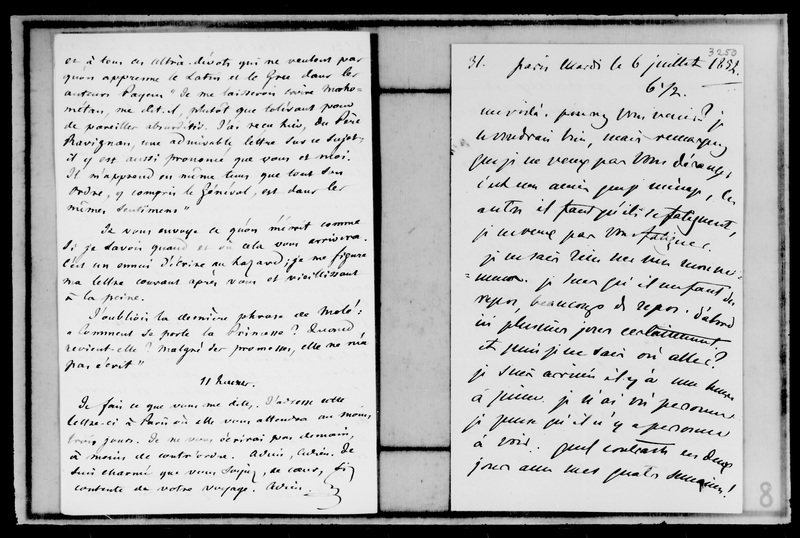 et à tous ces ultra-dévots qui ne veulent pas
qu'on apprenne le Latin et le Grec dans les
auteurs Payens "Je me laisserois croire maho-
métan, me dit-il, plutôt que tolérant pour
de pareilles absurdités. J'ai reçu hier, du Père
Ravignan, une admirable lettre sur ce sujet,
il y est aussi prononcé que vous et moi.
Il m'apprend en même tems que tout son
ordre, y compris le Général, est dans les
mêmes sentimens"
Je vous envoye ce qu'on m'écrit comme
si je savois quand et où cela vous arrivera.
C'est un ennui d'écrire au hazard; je me figure
ma lettre courant après vous et vieillissant
à la peine.
J'oubliois la dernière phrase de Molé:
"Comment se porte la Princesse? Quand
revient-elle? Malgré ses promesses, elle ne m'a
pas écrit"
11 heures.
Je fais ce que vous me dites. J'adresse cette
lettre-ci à Paris où elle vous attendra au moins
trois jours. Je ne vous écrirai pas demain,
à moins de contr'ordre. Adieu, Adieu. Je
suis charmé que vous soyez, de cœur, si
contente de votre voyage. Adieu.
3250
31. Paris Mardi le 6 juillet 1852.
6 1/2.
me voilà. pourrez vous venir? je
le voudrais bien, mais remarquez
que je ne veux pas vous déranger,
c'est mes amis que je ménage, les
autres il faut qu'ils se fatiguent,
je ne veux pas vous fatiguer.
je ne sais rien sur mes mouve-
=mens. je sens qu'il me faut du
repos, beaucoup de repos. d'abord
ici plusieurs jours certainement
et puis je ne sais où aller?
je suis arrivée il y a une heure
à peine. je n'ai vu personne
je pense qu'il n'y a personne
à voir. quel contraste ces deux
jours avec mes quatre semaines!
8